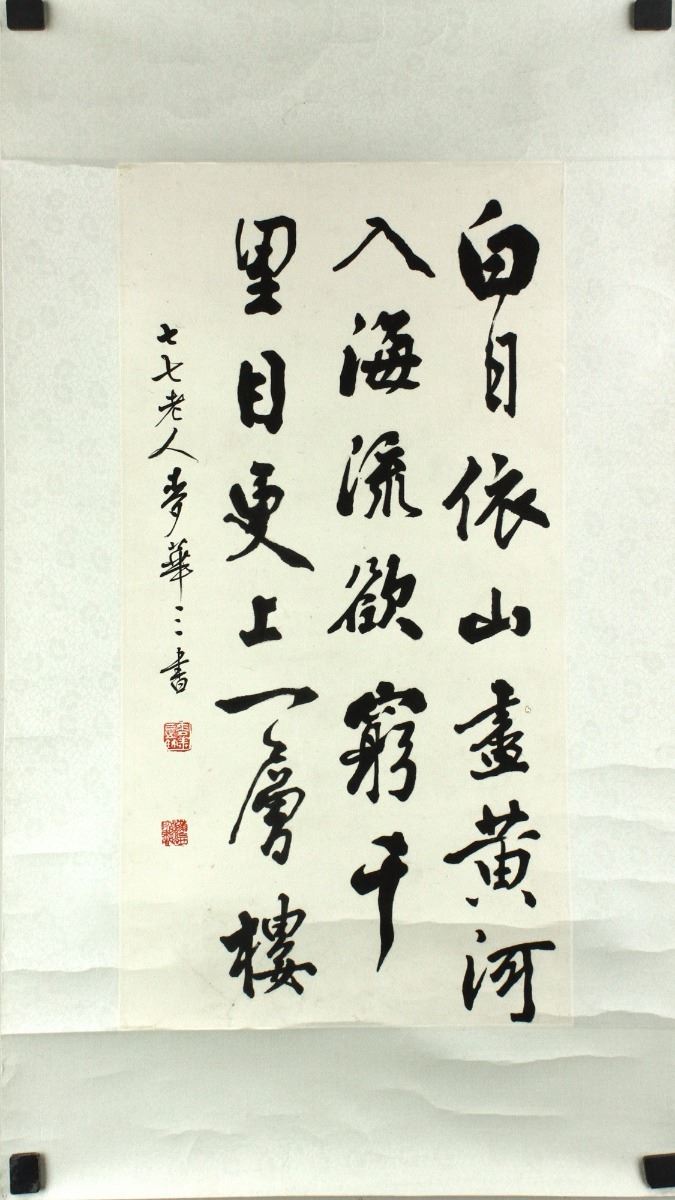 白日依山盡黄河
入海流欲窮千
里目更上一層樓
七七老人麥華三書